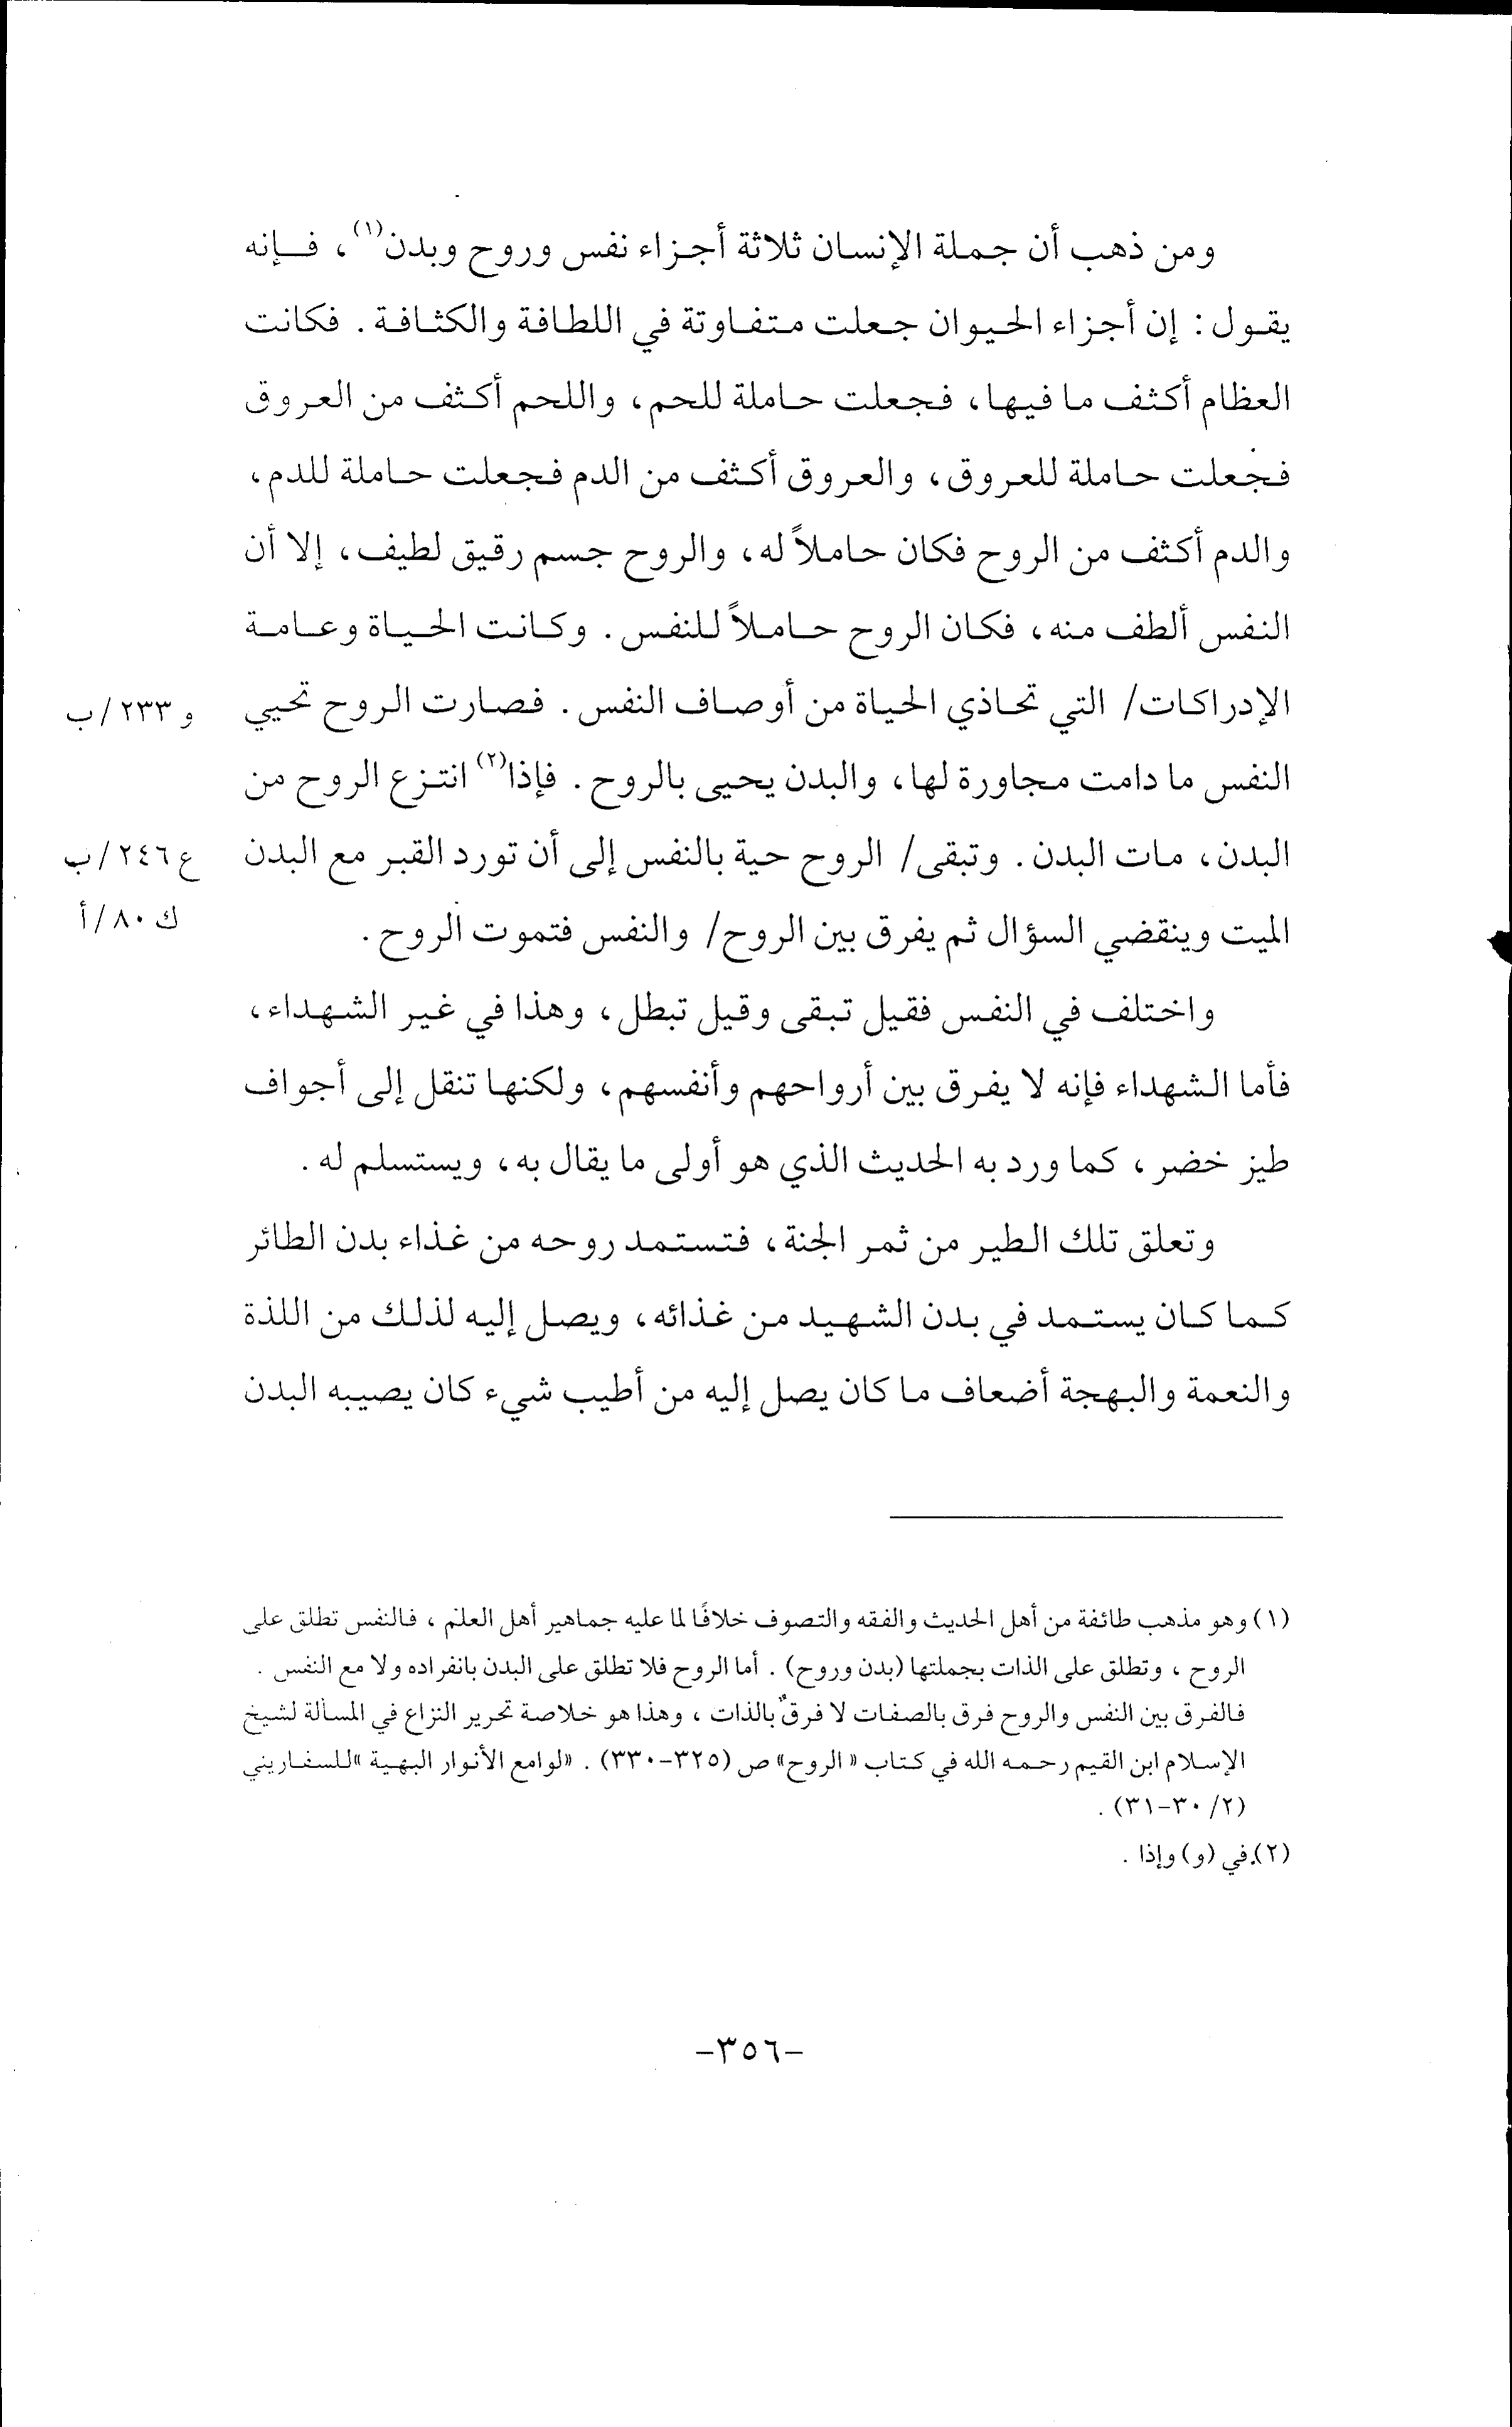 ومن ذهب أن جملة الإنسان ثلاثة أجزاء نفس وروح وبدن(١)، فإنه
يقول: إن أجزاء الحيوان جعلت متفاوتة في اللطافة والكثافة. فكانت
العظام أكثف ما فيها، فجعلت حاملة للحم، واللحم أكثف من العروق
فجعلت حاملة للعروق، والعروق أكثف من الدم فجعلت حاملة للدم،
والدم أكثف من الروح فكان حاملاً له، والروح جسم رقيق لطيف، إلا أن
النفس ألطف منه، فكان الروح حاملاً للنفس. وكانت الحياة وعامة
الإدراكات/ التي تحاذي الحياة من أوصاف النفس. فصارت الروح تحيي
و ٢٣٣/ب
النفس ما دامت مجاورة لها، والبدن يحيى بالروح. فإذا(٢) انتزع الروح من
البدن، مات البدن. وتبقى/ الروح حية بالنفس إلى أن تورد القبر مع البدن
ع ٢٤٦/ب
الميت وينقضي السؤال ثم يفرق بين الروح/ والنفس فتموت الروح.
ك ٨٠/أ
واختلف في النفس فقيل تبقى وقيل تبطل، وهذا في غير الشهداء،
فأما الشهداء فإنه لا يفرق بين أرواحهم وأنفسهم، ولكنها تنقل إلى أجواف
طيز خضر، كما ورد به الحديث الذي هو أولى ما يقال به، ويستسلم له.
وتعلق تلك الطير من ثمر الجنة، فتستمد روحه من غذاء بدن الطائر
كما كان يستمد في بدن الشهيد من غذائه، ويصل إليه لذلك من اللذة
والنعمة والبهجة أضعاف ما كان يصل إليه من أطيب شيء كان يصيبه البدن
(١) وهو مذهب طائفة من أهل الحديث والفقه والتصوف خلافًا لما عليه جماهير أهل العلم، فالنفس تطلق على
الروح، وتطلق على الذات بجملتها (بدن وروح). أما الروح فلا تطلق على البدن بانفراده ولا مع النفس.
فالفرق بين النفس والروح فرق بالصفات لا فرقٌ بالذات، وهذا هو خلاصة تحرير النزاع في المسألة لشيخ
الإسلام ابن القيم رحمه الله في كتاب «الروح» ص (٣٢٥-٣٣٠). «لوامع الأنوار البهية» للسفاريني
(٢/ ٣٠-٣١).
(٢) في (و) وإذا.
-٣٥٦-